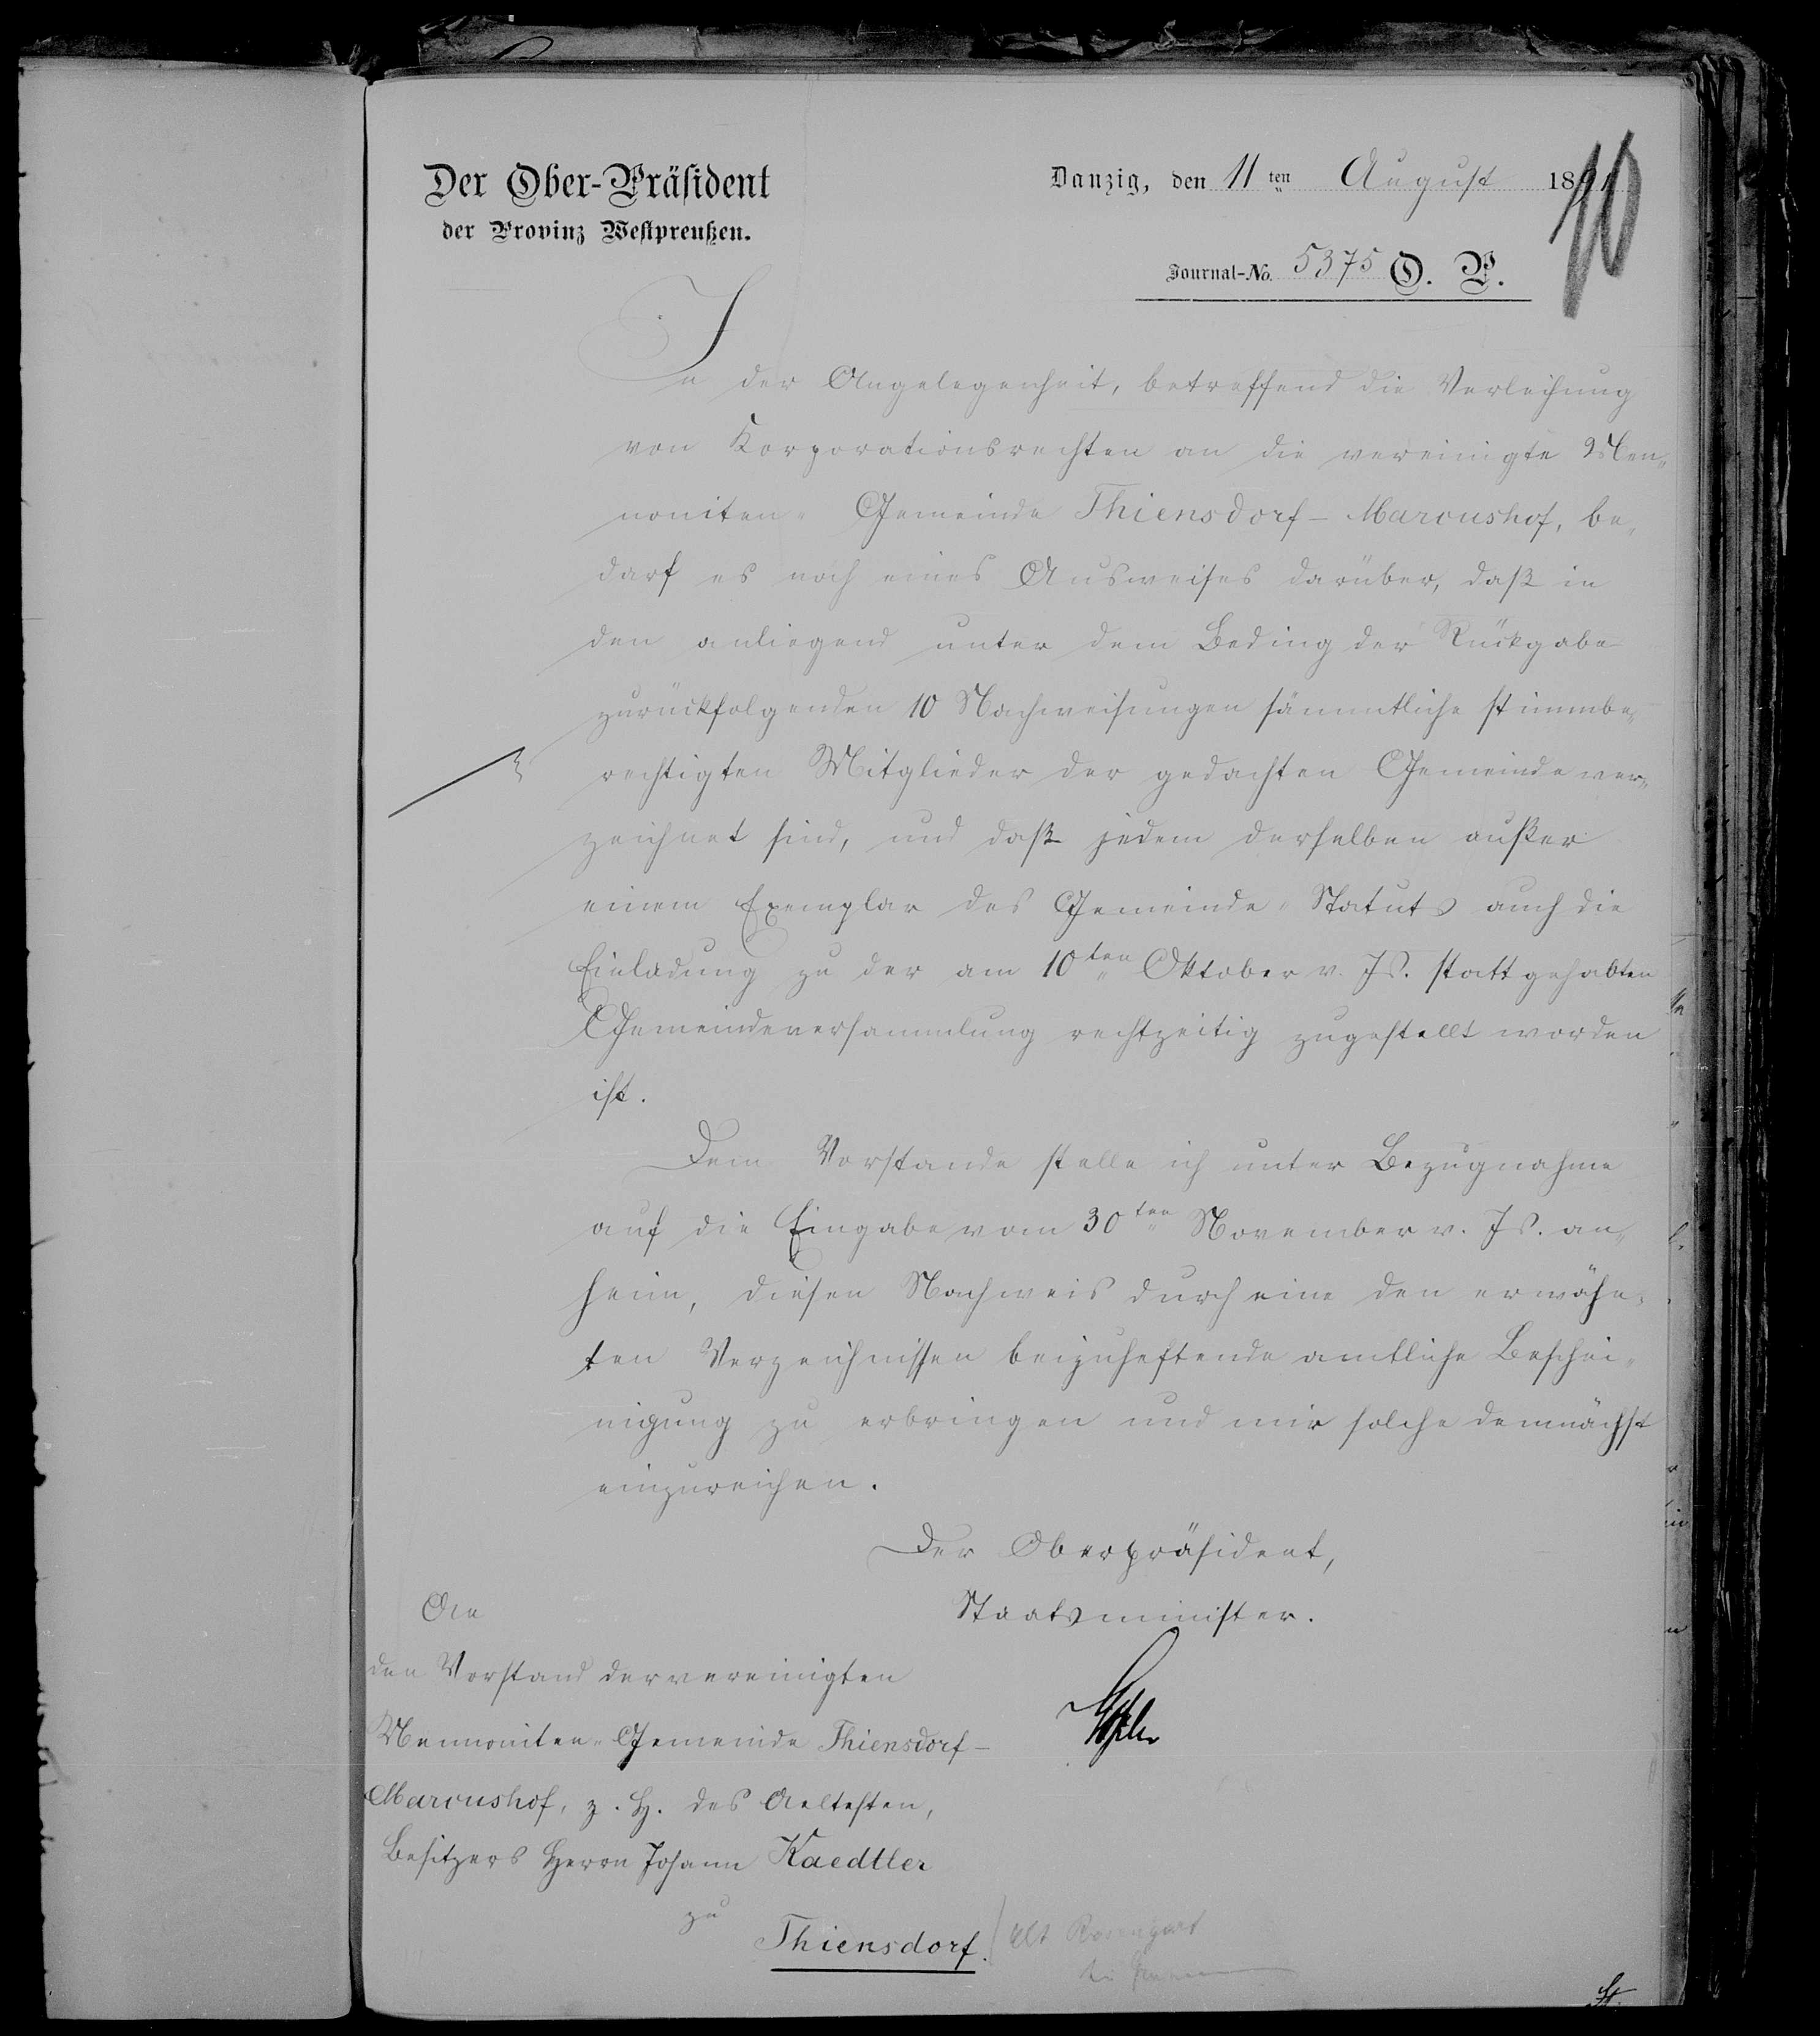 Der Ober-Präsident
der Provinz Westpreußen.
Danzig, den 11ten August 1891
10
Journal-No. 5375 O. P.
In der Angelegenheit, betreffend die Verleihung
von Korporationsrechten an die vereinigte Men„
noniten- Gemeinde Thiensdorf- Marcushof, be„
darf es noch eines Ausweises darüber, daß in
den anliegend unter dem Beding der Rückgabe
zurückfolgenden 10 Nachweisungen sämmtliche stimmbe„
rechtigten Mitglieder der gedachten Gemeinde ver„
zeichnet sind, und daß jedem derselben außer
einem Exemplar des Gemeinde-Statuts auch die
Einladung zu der am 10ten Oktober v. Js. stattgehabten
Gemeindeversammlung rechtzeitig zugestellt worden
ist.
Dem Vorstande stelle ich unter Bezugnahme
auf die Eingabe vom 30ten November v. Js. an„
heim, diesen Nachweis durch eine den erwähn„
ten Verzeichnissen beizuheftende amtliche Beschei„
nigung zu erbringen und mir solche demnächst
einzureichen.
Der Oberpräsident,
Staatsminister.
An
den Vorstand der vereinigten
Mennoniten-Gemeinde Thiensdorf-
Marcushof, z. H. des Aeltesten,
Besitzers Herrn Johann Kaedtler
zu
Thiensdorf.
Alt Rosengart